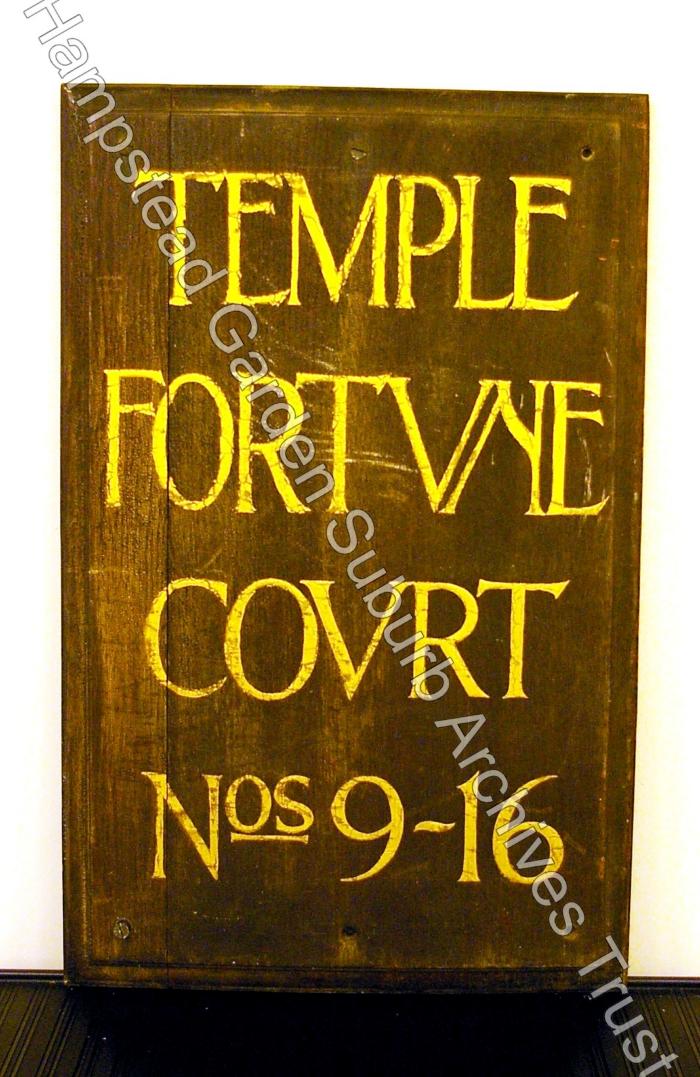 TEMPLE
FORTVNE
COVRT
Nos 9-16
Hampstead Garden Suburb Archives Trust